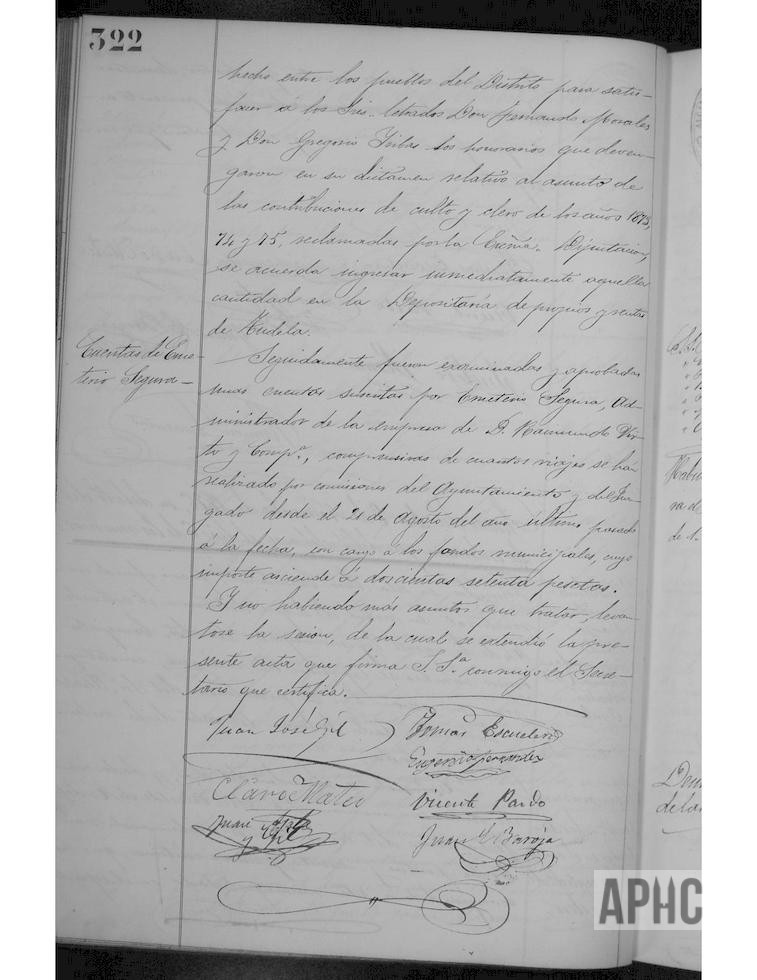 322
hecho entre los pueblos del Distrito para satis-
facer a los Sres. letrados Don Fernando Morales
y Don Gregorio Iribas los honorarios que deven-
garon en su dictamen relativo al asunto de
las contribuciones de culto y clero de los años 1873,
74 y 75, reclamadas por la Excma. Diputacion,
se acuerda ingresar inmediatamente aquella
cantidad en la Depositaría de propios y rentas
de Tudela.
Cuentas de Eme-
terio Segura—
Seguidamente fueron examinadas y aprobadas
unas cuentas suscritas por Emeterio Segura, Ad-
ministrador de la empresa de D. Raimundo Vir-
to y Comp.ª, comprensivas de cuantos viajes se han
realizado por comisiones del Ayuntamiento y del Juz-
gado desde el 21 de Agosto del año último pasado
á la fecha, con cargo á los fondos municipales, cuyo
importe asciende á doscientas setenta pesetas.
Y no habiendo más asuntos que tratar, levan-
tose la sesion, de la cual se extendió la pre-
sente acta que firma S.Sª. conmigo el Secre-
tario que certifica.
Juan José Gil
Tomás Escudero
Eugenio Fernandez
Claro Mateo
Vicente Pardo
Juan
y Gil
Juan Baroja
APHC